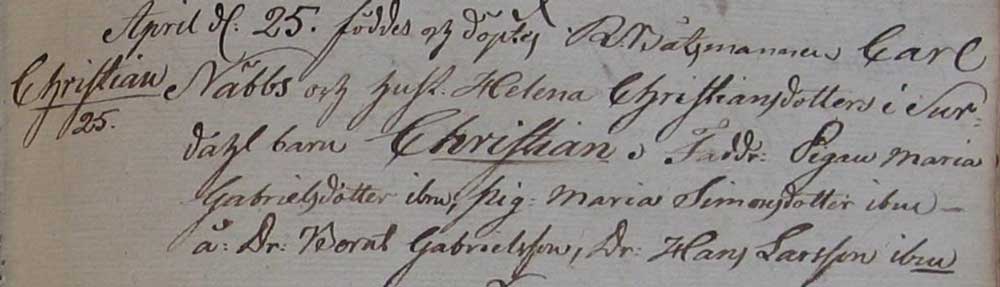 April d: 25. föddes och döptes R. Båtsmannen Carl
Christian Näbbs och husf. Helena Christiansdotters i Sur-
25.
dahl barn Christian, Faddr: Pigan Maria
Gabrielsdotter ibm, pig: Maria Simonsdotter ibm –
ä: Dr: Bernt Gabrielsson, Dr: Hans Larsson ibm